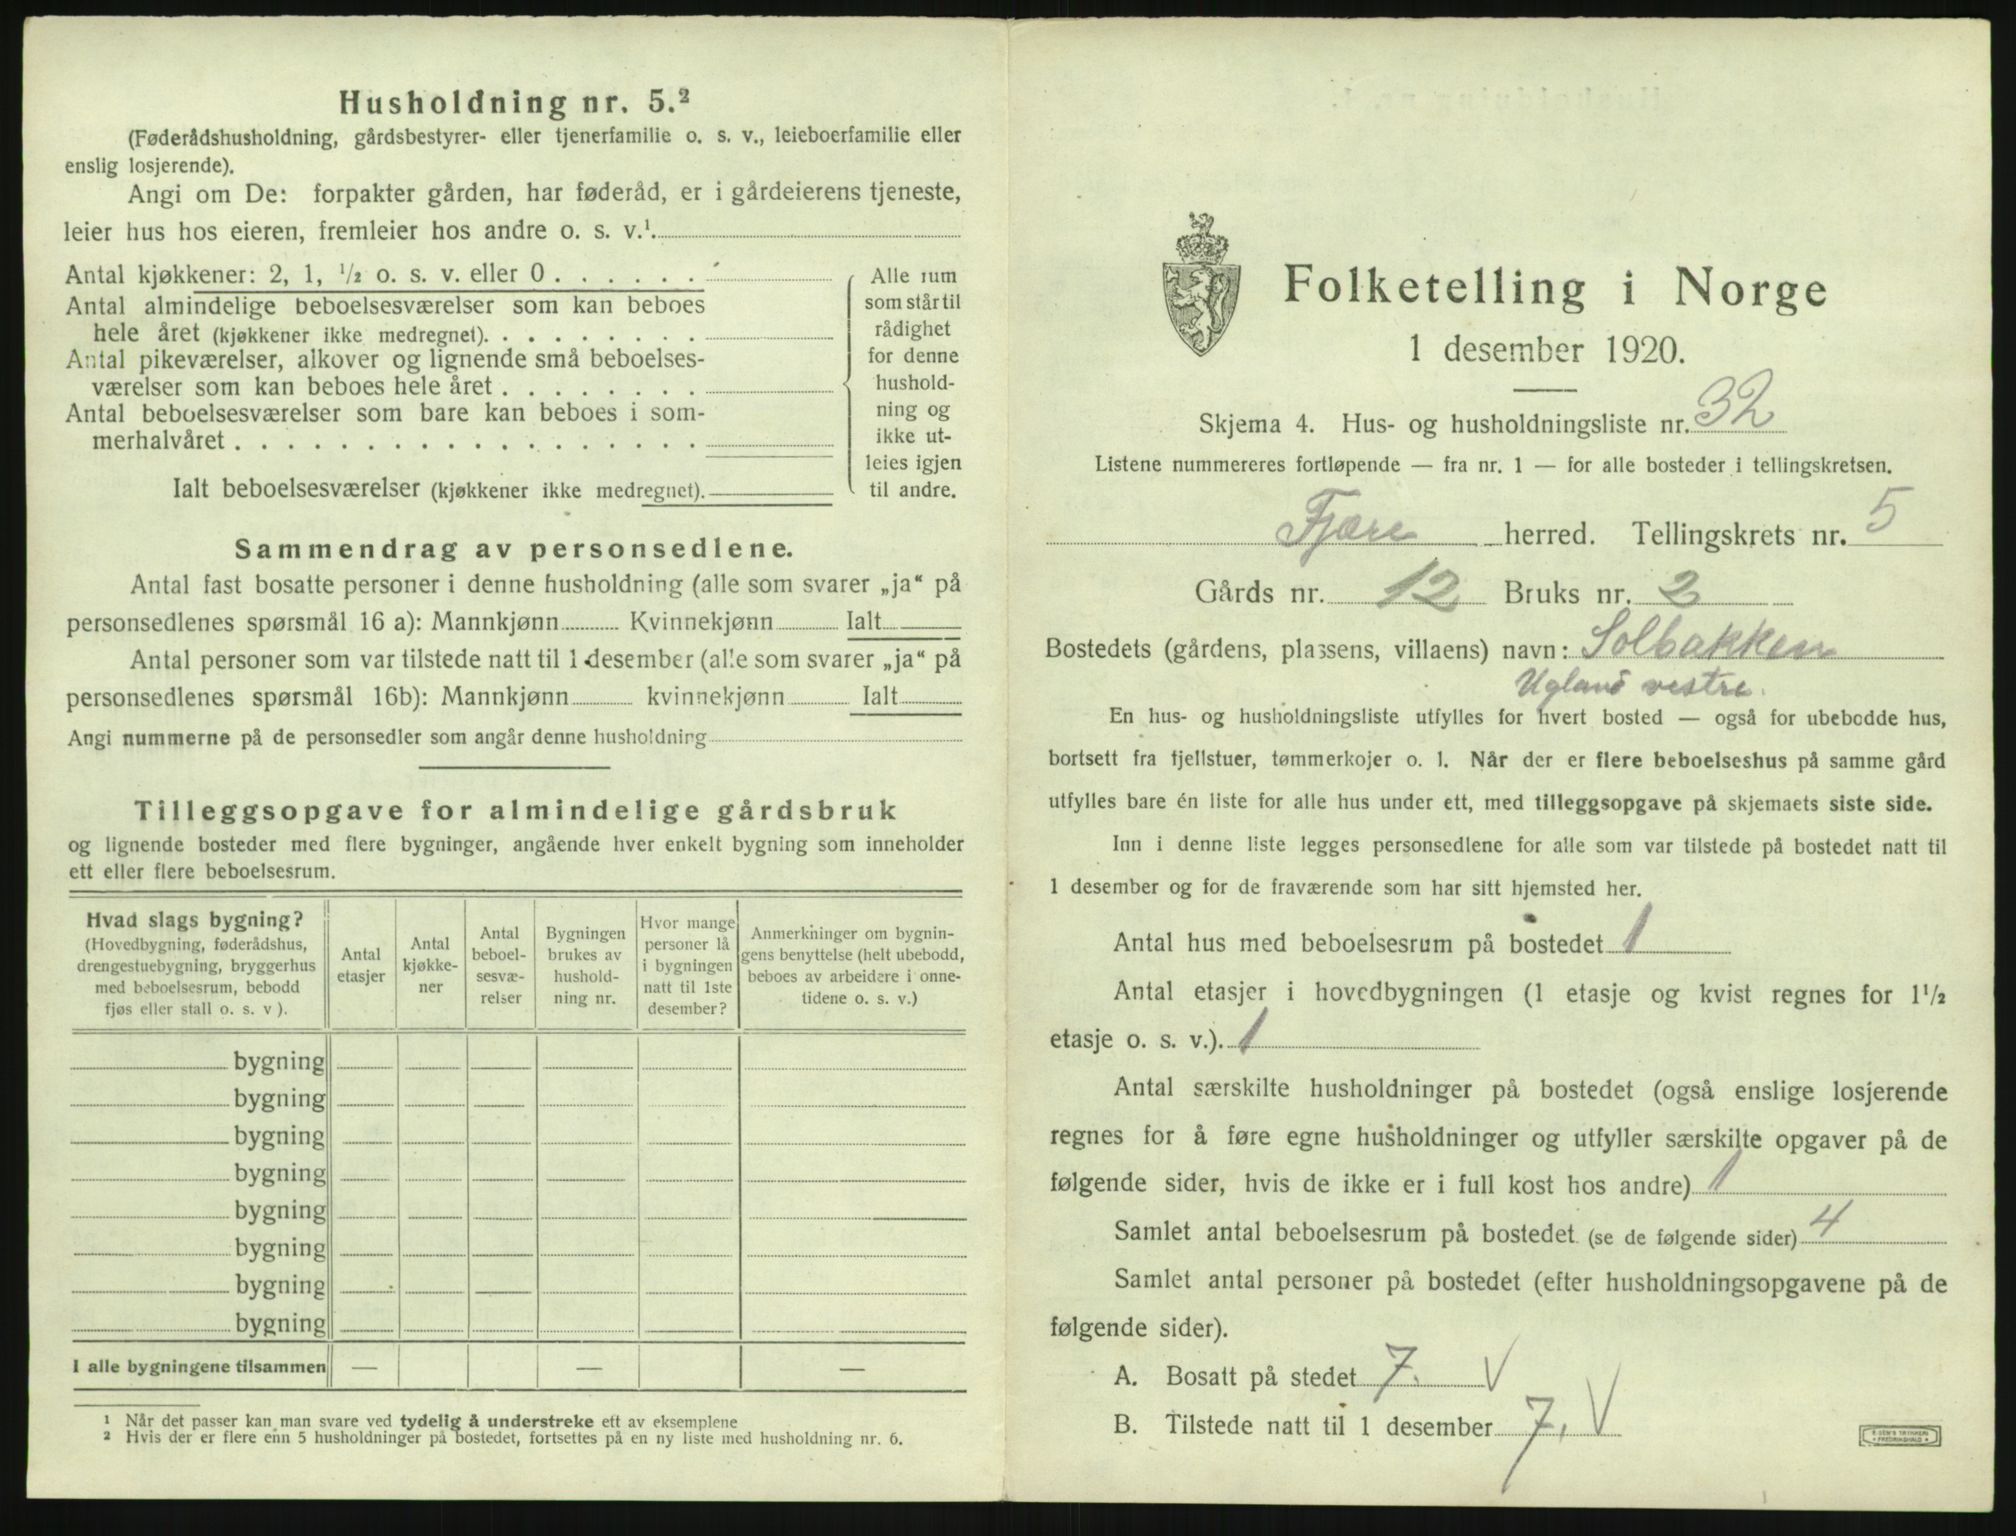 Husholdning nr. 5.²
(Føderådshusholdning, gårdsbestyrer- eller tjenerfamilie o. s. v., leieboerfamilie eller
enslig losjerende).
Angi om De: forpakter gården, har føderåd, er i gårdeierens tjeneste,
leier hus hos eieren, fremleier hos andre o. s. v.¹
Antal kjøkkener: 2, 1, ½ o. s. v. eller 0 . . . . . .
Antal almindelige beboelsesværelser som kan beboes
hele året (kjøkkener ikke medregnet). . . . . . . . .
Antal pikeværelser, alkover og lignende små beboelses-
værelser som kan beboes hele året . . . . . . . .
Antal beboelsesværelser som bare kan beboes i som-
merhalvåret . . . . . . . . . . . . . . . . . .
Ialt beboelsesværelser (kjøkkener ikke medregnet).
Alle rum
som står til
rådighet
for denne
hushold-
ning og
ikke ut-
leies igjen
til andre.
Sammendrag av personsedlene.
Antal fast bosatte personer i denne husholdning (alle som svarer „ja“ på
personsedlenes spørsmål 16 a): Mannkjønn Kvinnekjønn Ialt
Antal personer som var tilstede natt til 1 desember (alle som svarer „ja“ på
personsedlenes spørsmål 16b): Mannkjønn kvinnekjønn Ialt
Angi nummerne på de personsedler som angår denne husholdning
Tilleggsopgave for almindelige gårdsbruk
og lignende bosteder med flere bygninger, angående hver enkelt bygning som inneholder
ett eller flere beboelsesrum.
Hvad slags bygning?
(Hovedbygning, føderådshus,
drengestuebygning, bryggerhus
med beboelsesrum, bebodd
fjøs eller stall o. s. v ).
Antal
etasjer
Antal
kjøkke-
ner
Antal
beboel-
sesvæ-
relser
Bygningen
brukes av
hushold-
ning nr.
Hvor mange
personer lå
i bygningen
natt til 1ste
desember?
Anmerkninger om bygnin-
gens benyttelse (helt ubebodd,
beboes av arbeidere i onne-
tidene o. s. v.)
bygning
bygning
bygning
bygning
bygning
bygning
bygning
bygning
I alle bygningene tilsammen — — —
1 Når det passer kan man svare ved tydelig å understreke ett av eksemplene
2 Hvis der er flere enn 5 husholdninger på bostedet, fortsettes på en ny liste med husholdning nr. 6.
Folketelling i Norge
1 desember 1920.
Skjema 4. Hus- og husholdningsliste nr. 32
Listene nummereres fortløpende — fra nr. 1 — for alle bosteder i tellingskretsen.
Fjære herred. Tellingskrets nr. 5
Gårds nr. 12 Bruks nr. 2
Bostedets (gårdens, plassens, villaens) navn: Solbakken
Ugland vestre.
En hus- og husholdningsliste utfylles for hvert bosted — også for ubebodde hus,
bortsett fra fjellstuer, tømmerkojer o. l. Når der er flere beboelseshus på samme gård
utfylles bare én liste for alle hus under ett, med tilleggsopgave på skjemaets siste side.
Inn i denne liste legges personsedlene for alle som var tilstede på bostedet natt til
1 desember og for de fraværende som har sitt hjemsted her.
Antal hus med beboelsesrum på bostedet 1
Antal etasjer i hovedbygningen (1 etasje og kvist regnes for 1½
etasje o. s. v.). 1
Antal særskilte husholdninger på bostedet (også enslige losjerende
regnes for å føre egne husholdninger og utfyller særskilte opgaver på de
følgende sider, hvis de ikke er i full kost hos andre) 1
Samlet antal beboelsesrum på bostedet (se de følgende sider) 4
Samlet antal personer på bostedet (efter husholdningsopgavene på de
følgende sider).
A. Bosatt på stedet 7. V
B. Tilstede natt til 1 desember 7. V